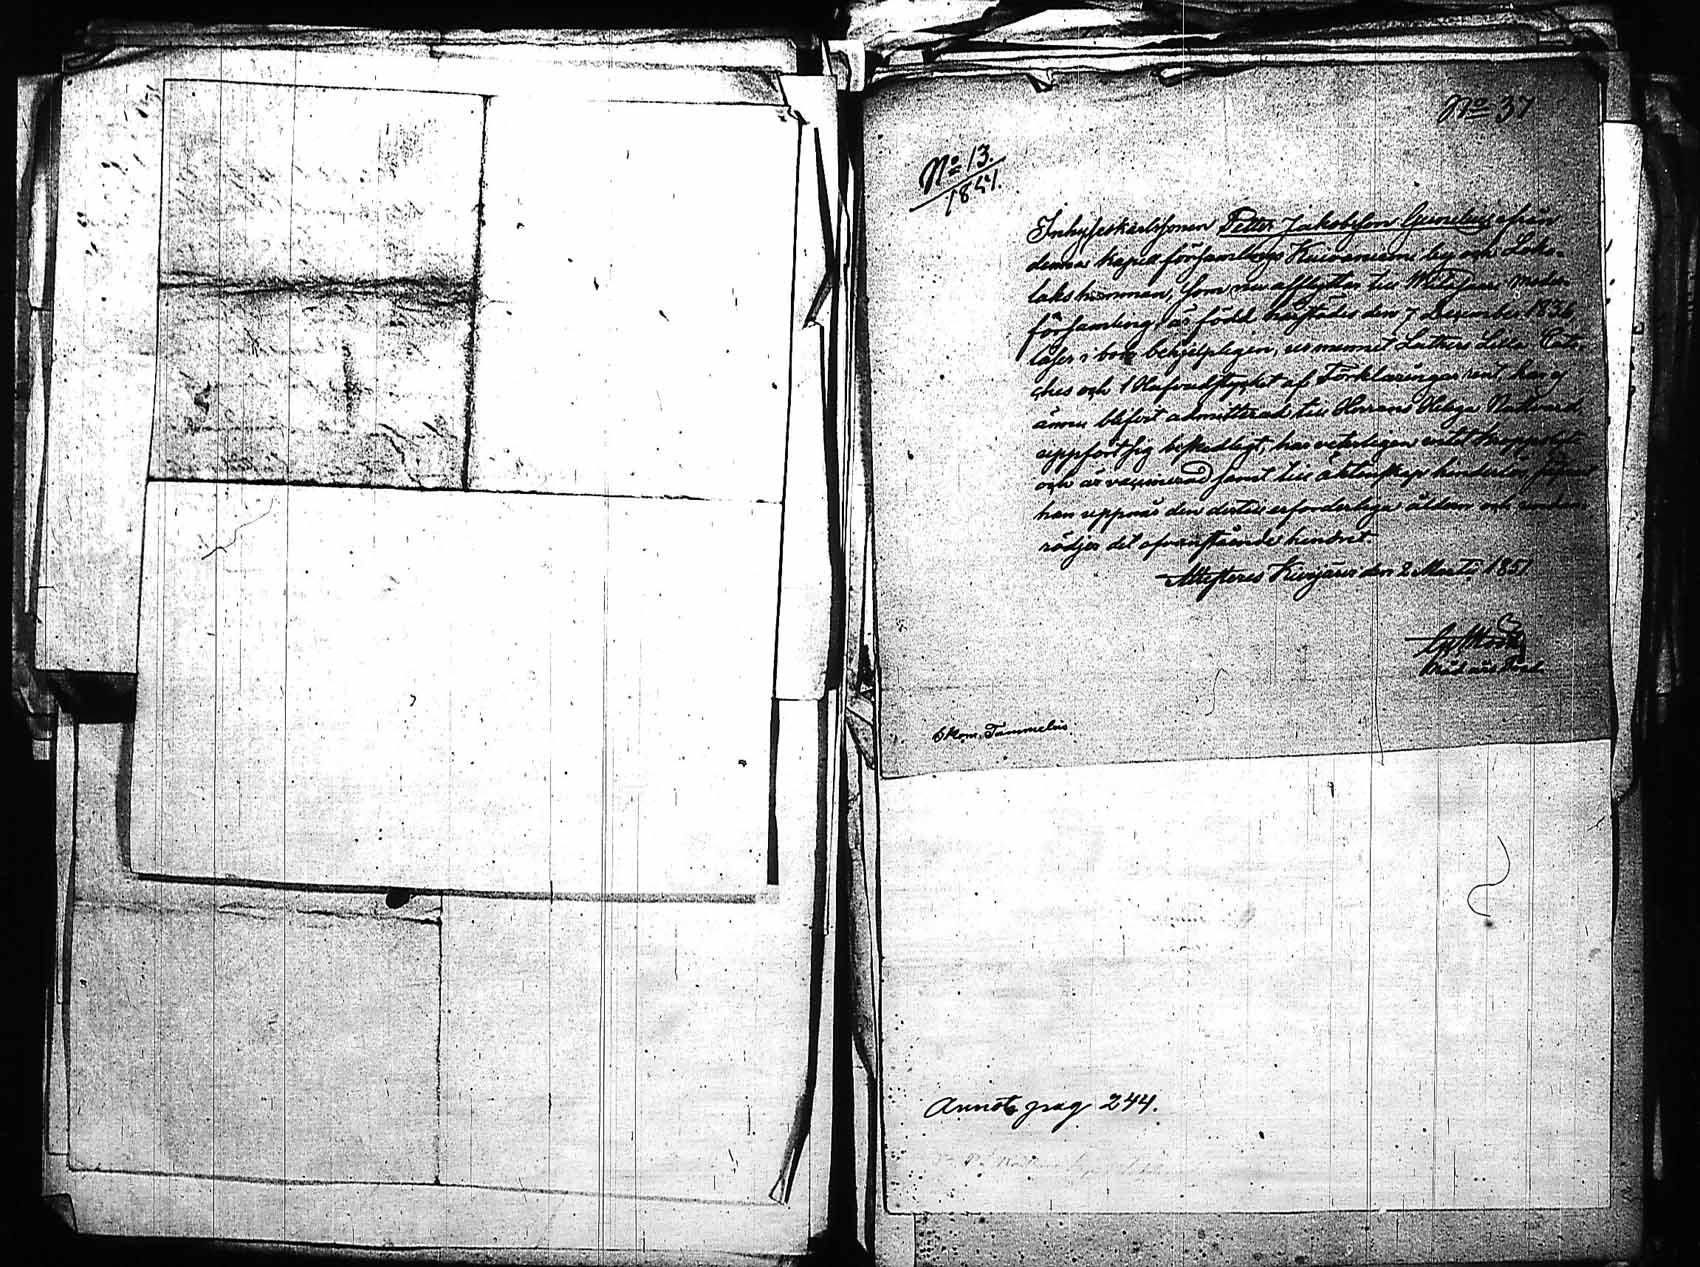 No 37
No 13.
1851.
Inhyseskarlssonen Petter Jakobsson Gunelius ifrån
denna Kapell församlings by och Loko-
laks hemman, som nu afflyttar till moder
församling, är född härstädes den 7 December 1836,
läser i bok behjelpligen, ur minnet Luthers Lilla Cate-
ches och 1 Hufvudstycket af Förklaringar vet, har ej
ännu blifvit admitterad till Herrans Heliga Nattvard,
uppfört sig beskedligt, har veterligen intet
och är vaccinerad samt till äktenskap hinderlös,
han uppnår den dertill erforderliga åldern och undan-
rödjer det ofvanstående hindret.
Attesteras Kivijärvi den 2 Martii 1851
Tammelin.
Annot. pag 244.